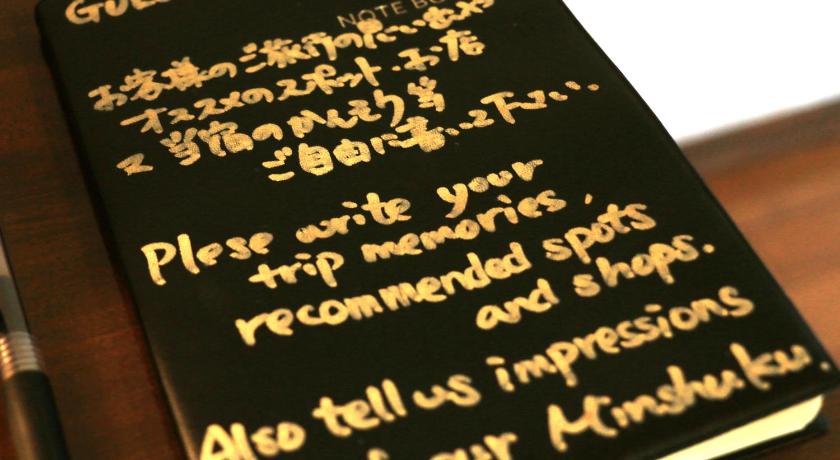 NOTE BO
お客様のご旅行の思い出や
オススメのスポット・お店
又当宿のかんそう等
ご自由に書いて下さい…
Plese write your
trip memories,
recommended spots
and shops.
Also tell us impressions
our Minshuku.